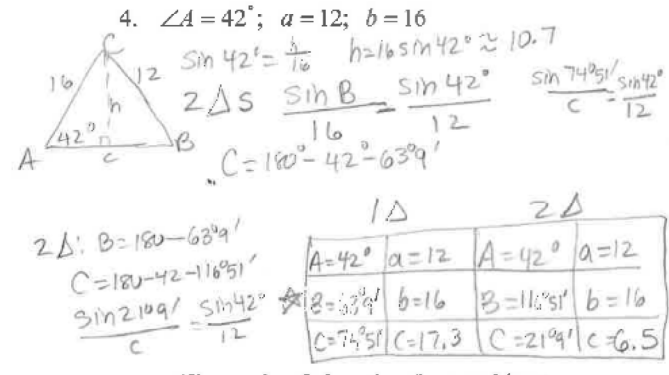 4. ∠A = 42°; a = 12; b = 16
C
16
12
h
42°
A
c
B
sin 42° = h/16
h = 16 sin 42° ≈ 10.7
2 Δs
sin B/16 = sin 42°/12
sin 74°51'/c = sin 42°/12
C = 180° - 42° - 63°9'
2Δ: B = 180 - 63°9'
C = 180 - 42 - 116°51'
sin 21°9'/c = sin 42°/12
1Δ 2Δ
A = 42° a = 12 A = 42° a = 12
☆ B = 63°9' b = 16 B = 116°51' b = 16
C = 74°51' c = 17.3 C = 21°9' c = 6.5